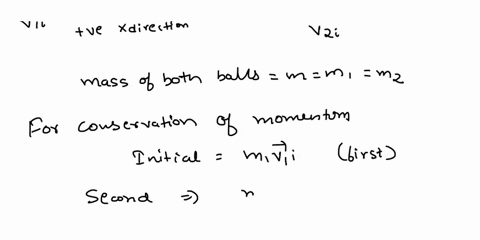 v1i +ve xdirection v2i
mass of both balls = m = m1 = m2
For conservation of momentum
Initial = m1 v⃗1i (first)
Second ⇒